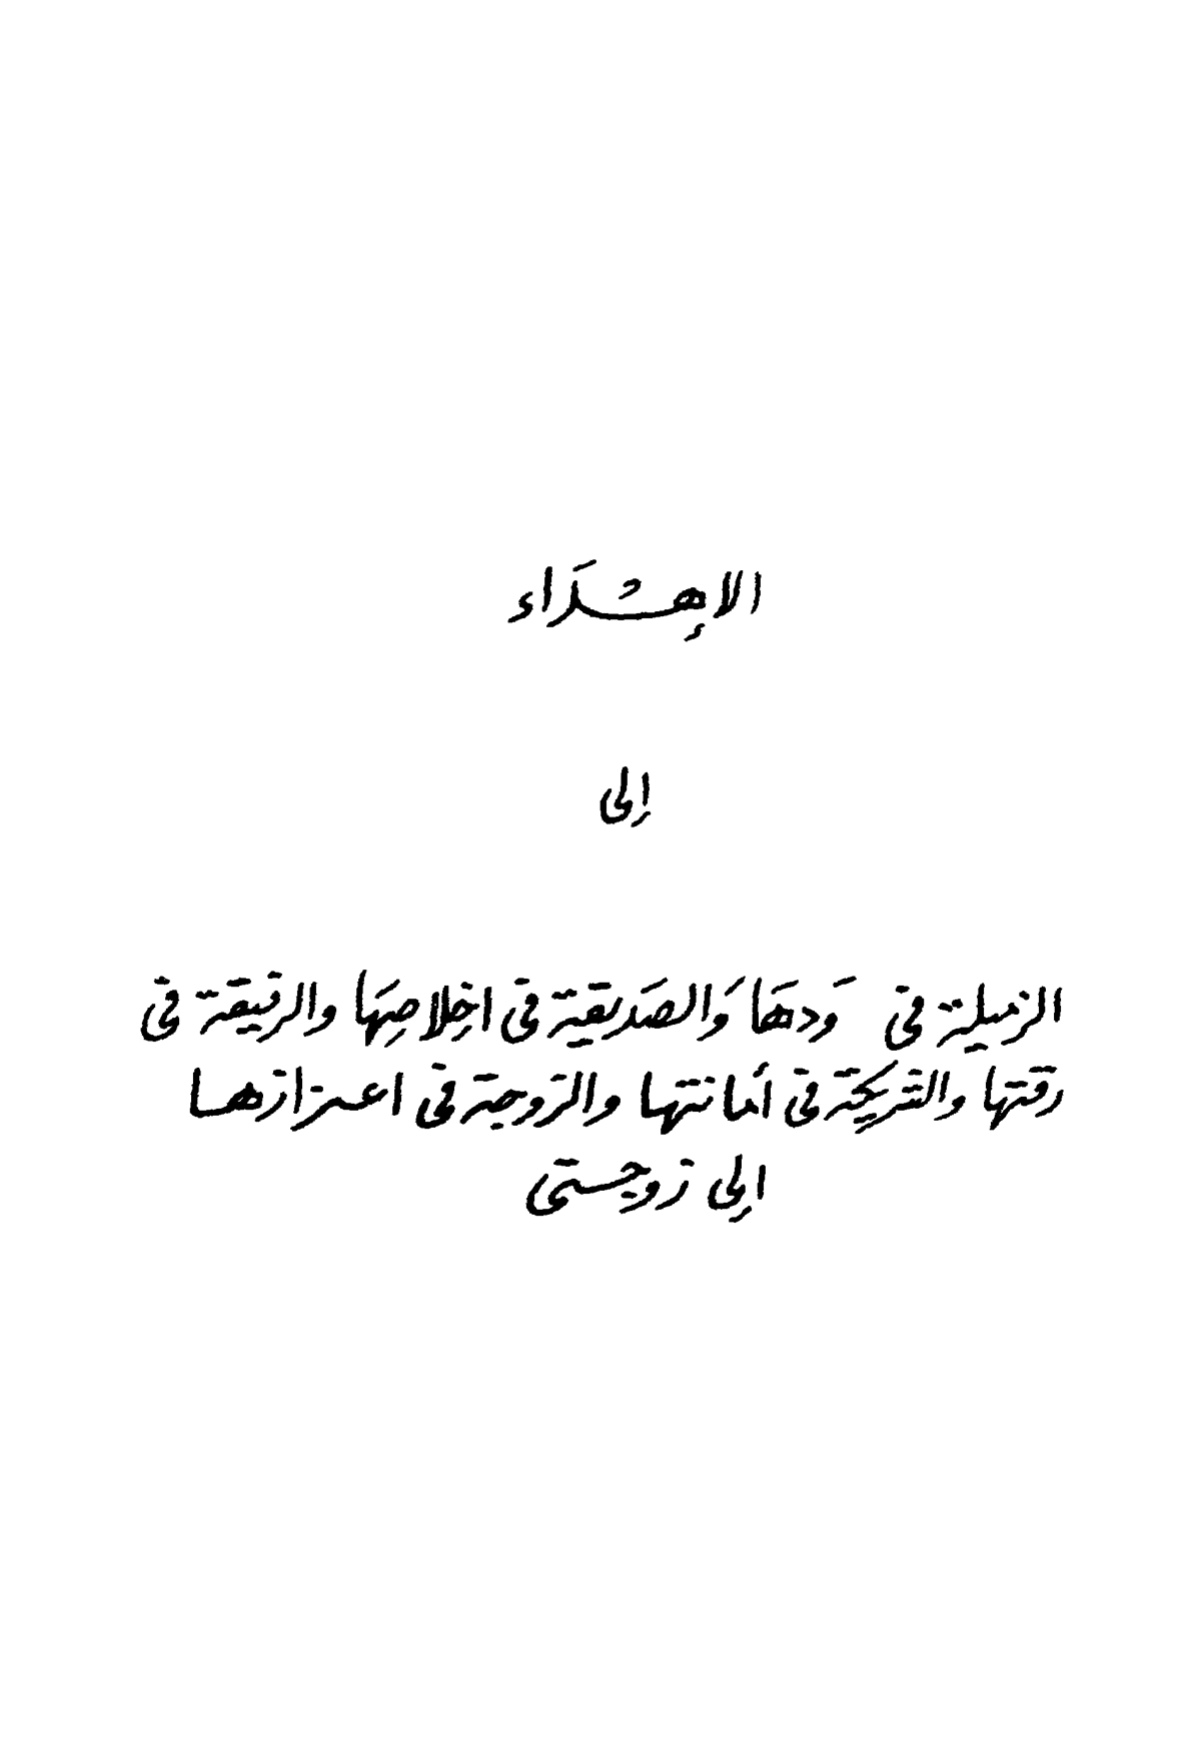 الإهْدَاء
إلى
الزميلة فى وَدهَا وَالصَديقة فى اخِلاصِهَا والرقيقة فى
رقتها والشريكة فى أمانتها والزوجة فى اعتزازها
الى زوجتى